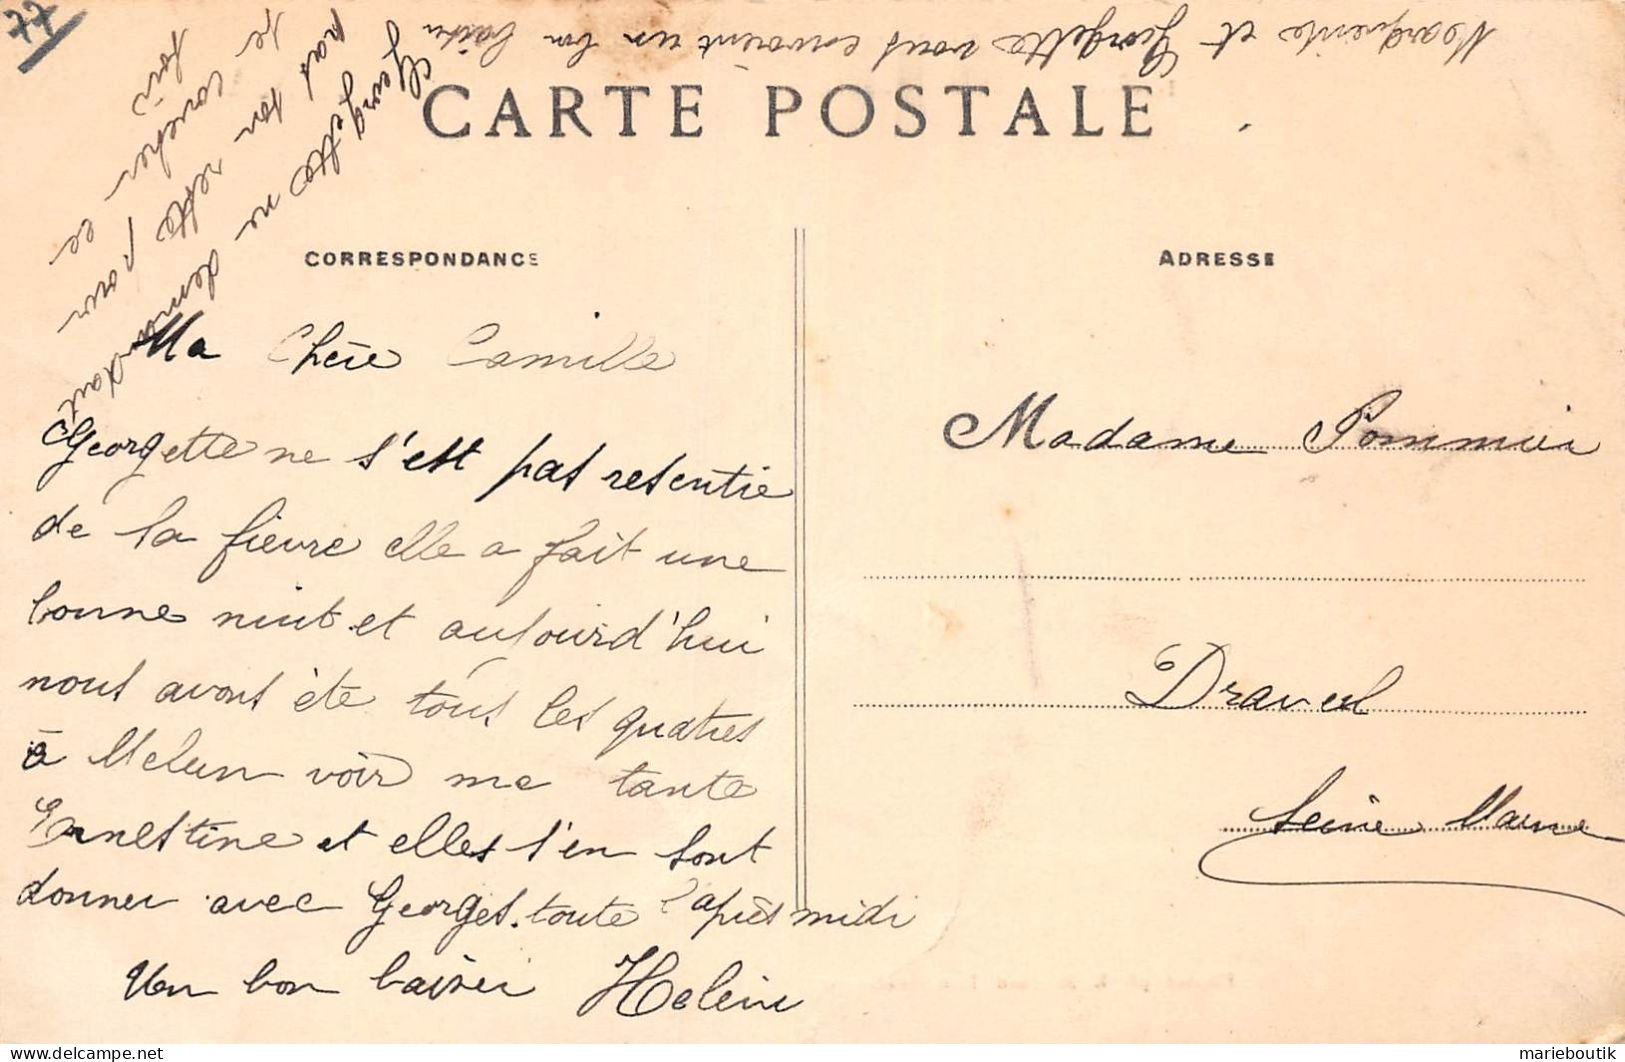 77
Marguerite et Georgette vous envoient un bon baiser
Georgette ne demandait
pas son reste pour
se coucher ce
soir
CARTE POSTALE
CORRESPONDANCE
ADRESSE
Ma Chère Camille
Georgette ne s'est pas resentie
de la fievre elle a fait une
bonne nuit et aujourd'hui
nous avons été tous les quatres
à Melun voir ma tante
Ernestine et elles s'en sont
donner avec Georges toute l'après midi
Un bon baiser Helène
Madame Pommier
Draveil
Seine Marne
marieboutik
www.delcampe.net